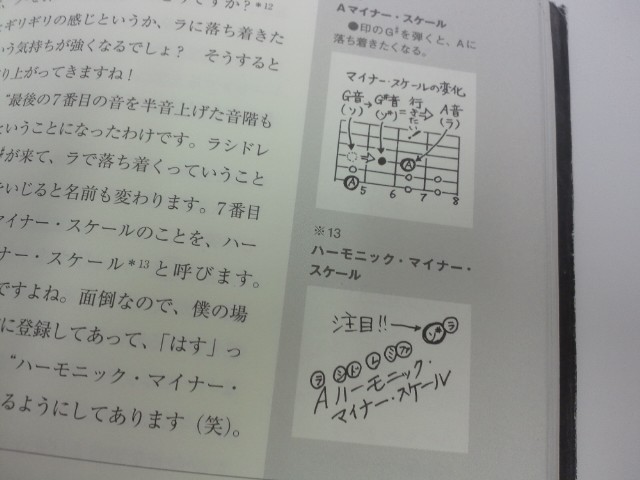 ですか？＊12
ギリギリの感じというか、ラに落ち着きた
いう気持ちが強くなるでしょ？　そうすると
り上がってきますね！
"最後の7番目の音を半音上げた音階も
ということになったわけです。ラシドレ
が来て、ラで落ち着くっていうこと
をいじると名前も変わります。7番目
マイナー・スケールのことを、ハー
ナー・スケール＊13と呼びます。
ですよね。面倒なので、僕の場
に登録してあって、「はす」っ
"ハーモニック・マイナー・
るようにしてあります（笑）。
Aマイナー・スケール
●印のG♯を弾くと、Aに
落ち着きたくなる。
マイナー・スケールの変化
G音→G#音 行きたい!! ⇒ A音
(ソ) (ソ#) (ラ)
A
A
5 6 7 8
※13
ハーモニック・マイナー・
スケール
注目!!→ソ#ラ
ラシドレミファ
Aハーモニック・
マイナー・スケール